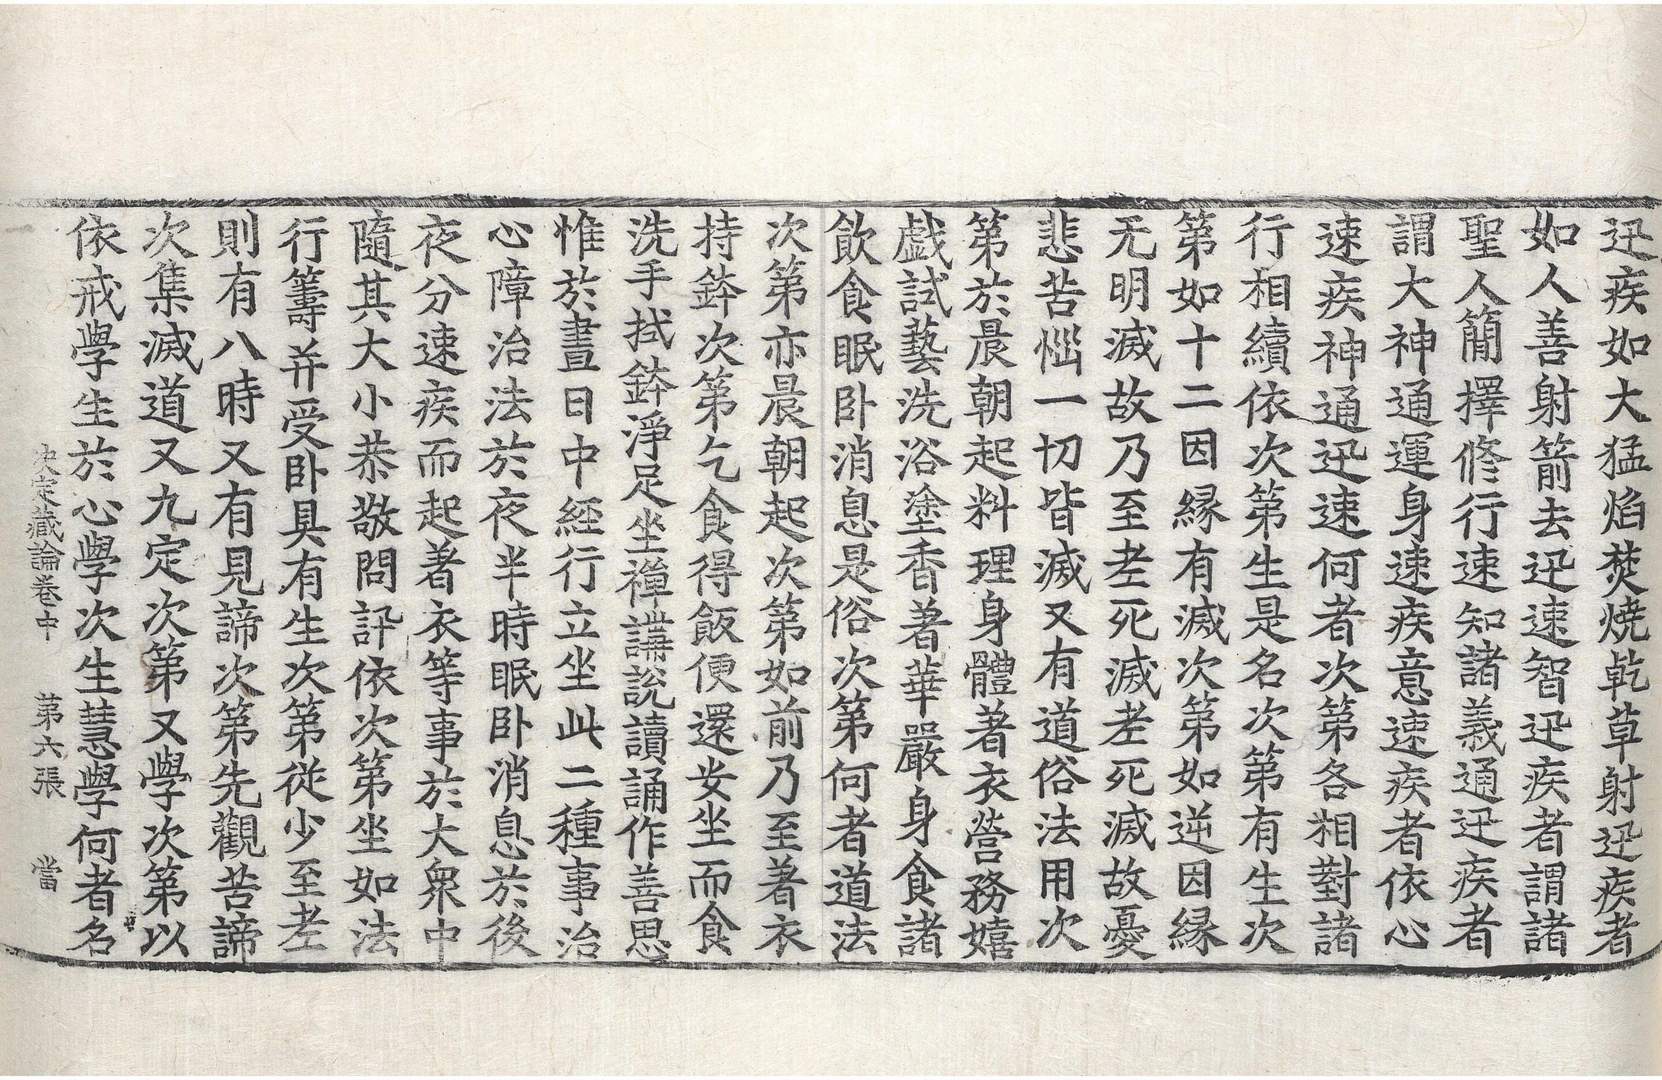 迅疾如大猛焰焚燒乾草射迅疾者
如人善射箭去迅速智迅疾者謂諸
聖人簡擇修行速知諸義通迅疾者
謂大神通運身速疾意速疾者依心
速疾神通迅速何者次第各相對諸
行相續依次第生是名次第有生次
第如十二因緣有滅次第如逆因緣
无明滅故乃至老死滅老死滅故憂
悲苦惱一切皆滅又有道俗法用次
第於晨朝起料理身體著衣營務嬉
戲試藝洗浴塗香著華嚴身食諸
飲食眠卧消息是俗次第何者道法
次第亦晨朝起次第如前乃至著衣
持鉢次第乞食得飯便還安坐而食
洗手拭鉢淨足坐禪講說讀誦作善思
惟於晝日中經行立坐此二種事治
心障治法於夜半時眠卧消息於後
夜分速疾而起著衣等事於大衆中
隨其大小恭敬問訊依次第坐如法
行籌并受卧具有生次第從少至老
則有八時又有見諦次第先觀苦諦
次集滅道又九定次第又學次第以
依戒學生於心學次生慧學何者名
决定藏論卷中　第六張　當